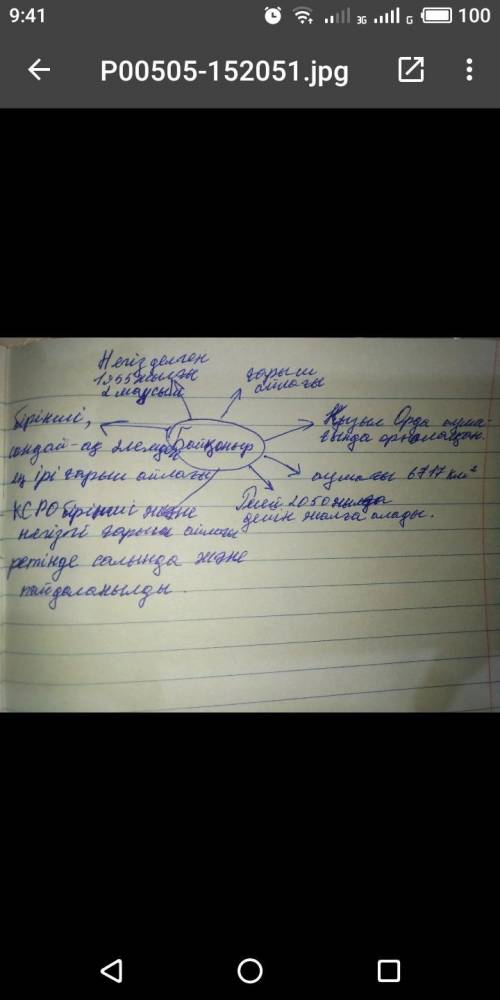 9:41
3G
G
100
P00505-152051.jpg
Негізделген
1955 жылғы
2 маусым
ғарыш
айлағы
Байқоңыр
бірінші,
сондай-ақ әлемдегі
ең ірі ғарыш айлағы
Қызыл Орда аума-
ғында орналасқан.
аумағы 6717 км²
Ресей 2050 жылға
дейін жалға алады.
КСРО бірінші және
негізгі ғарыш айлағы
ретінде салынды және
пайдаланылды.